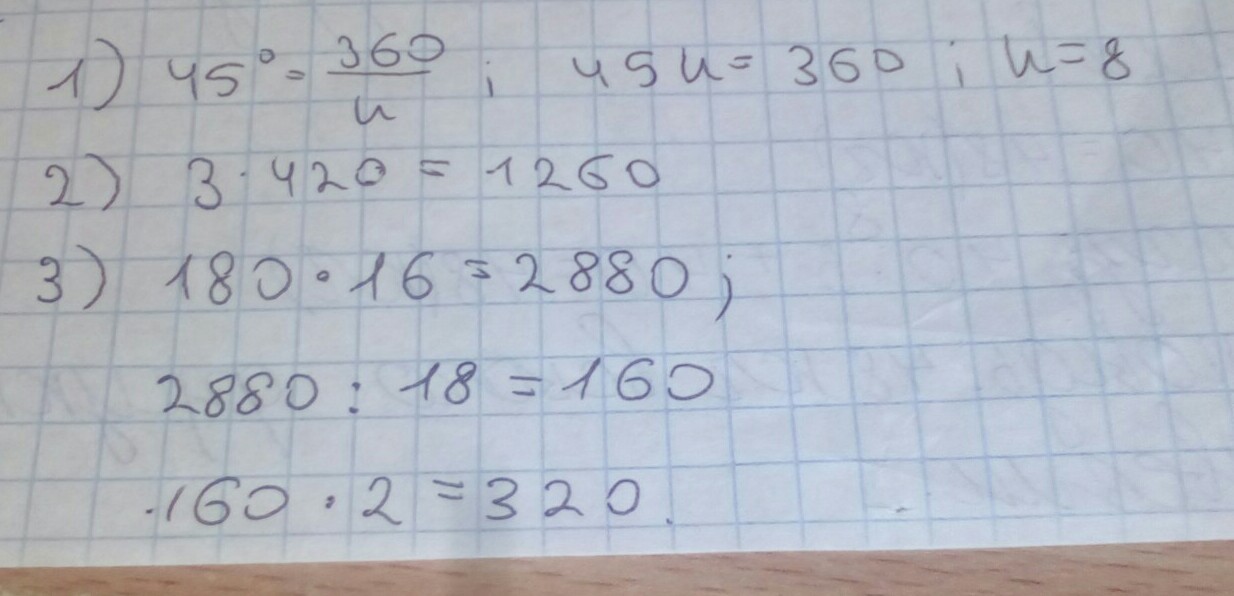 1) 45° = 360/n ; 45 n = 360 ; n = 8
2) 3 · 420 = 1260
3) 180 · 16 = 2880 ;
2880 : 18 = 160
160 · 2 = 320.